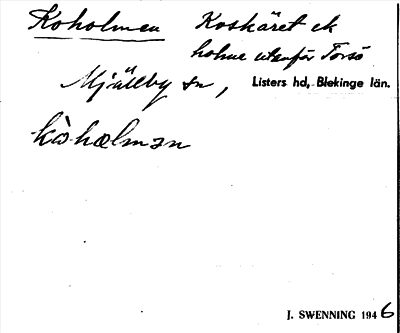 Koholmen Koskäret el
holme utanför Torsö
Mjällby sn, Listers hd, Blekinge län.
kòholmən
J. SWENNING 1946